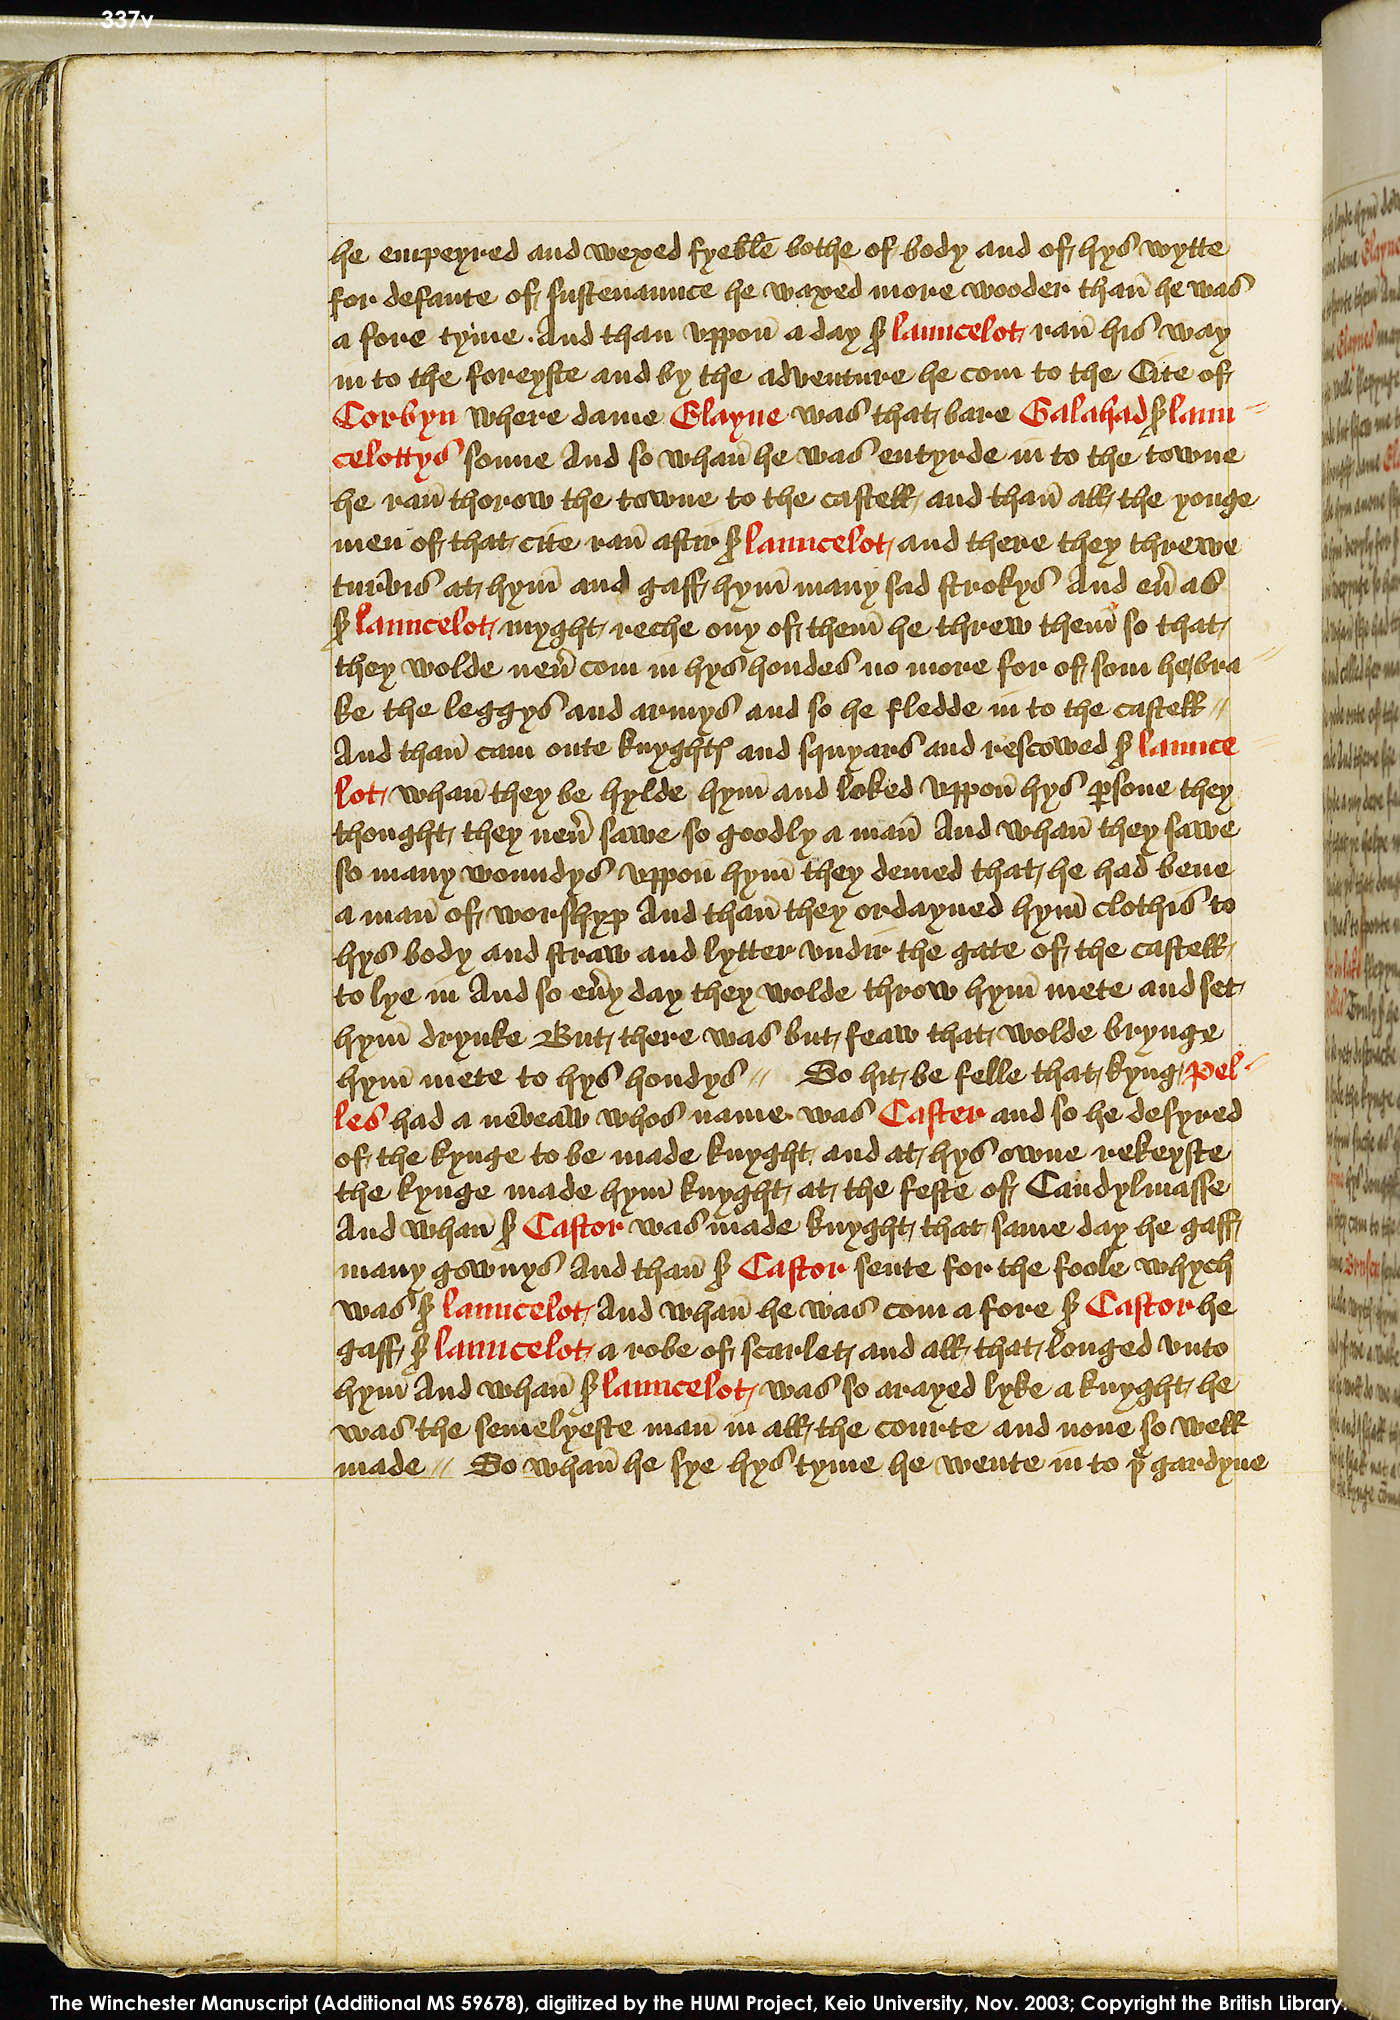 337v
he empeyred and wexed fyeble bothe of body and of hys wytte
for defaute of sustenaunce he waxed more wooder than̄ he was
a fore tyme. And than vppon̄ a day ẜ launcelot ran̄ his way
in to the foreyste and by the adventure he com to the Cite of
Corbyn where dame Elayne was that bare Galahad ẜ laun
celottys sonne And so whan̄ he was entyrde in to the towne
he ran̄ thorow the towne to the castell and than̄ all the yonge
men of that cite ran̄ aftir ẜ launcelot and there they threwe
turvis at hym̄ and gaff hym̄ many sad strokys And eū as
ẜ launcelot myght reche ony of them̄ he threw them̄ so that
they wolde neū com in hys hondes no more for of som he bra
ke the leggys and armys and so he fledde in to the castell //
And than̄ cam oute knyghtꝭ and squyars and rescowed ẜ launce
lot whan̄ they be hylde hym̄ and loked vppon̄ hys ꝑsone they
thought they neū sawe so goodly a man̄ And whan̄ they sawe
so many woundys vppon hym̄ they demed that he had bene
a man̄ of worshyp And than̄ they ordayned hym̄ clothis to
hys body and straw and lytter vndir the gate of the castell
to lye in And so eūy day they wolde throw hym̄ mete and set
hym̄ drynke But there was but feaw that wolde brynge
hym̄ mete to hys hondys // So hit be felle that kyng Pel-
les had a neveaw whos name was Caster and so he desyred
of the kynge to be made knyght and at hys owne rekeyste
the kynge made hym̄ knyght at the feste of Candylmasse
And whan̄ ẜ Castor was made knyght that same day he gaff
many gownys And than̄ ẜ Castor sente for the foole whych
was ẜ launcelot And whan̄ he was com a fore ẜ Castor he
gaff ẜ launcelot a robe of scarlet and all that longed vnto
hym̄ And whan̄ ẜ launcelot was so arayed lyke a knyght he
was the semelyeste man̄ in all the courte and none so well
made // So whan̄ he sye hys tyme he wente in to þͤ gardyne
The Winchester Manuscript (Additional MS 59678), digitized by the HUMI Project, Keio University, Nov. 2003; Copyright the British Library.